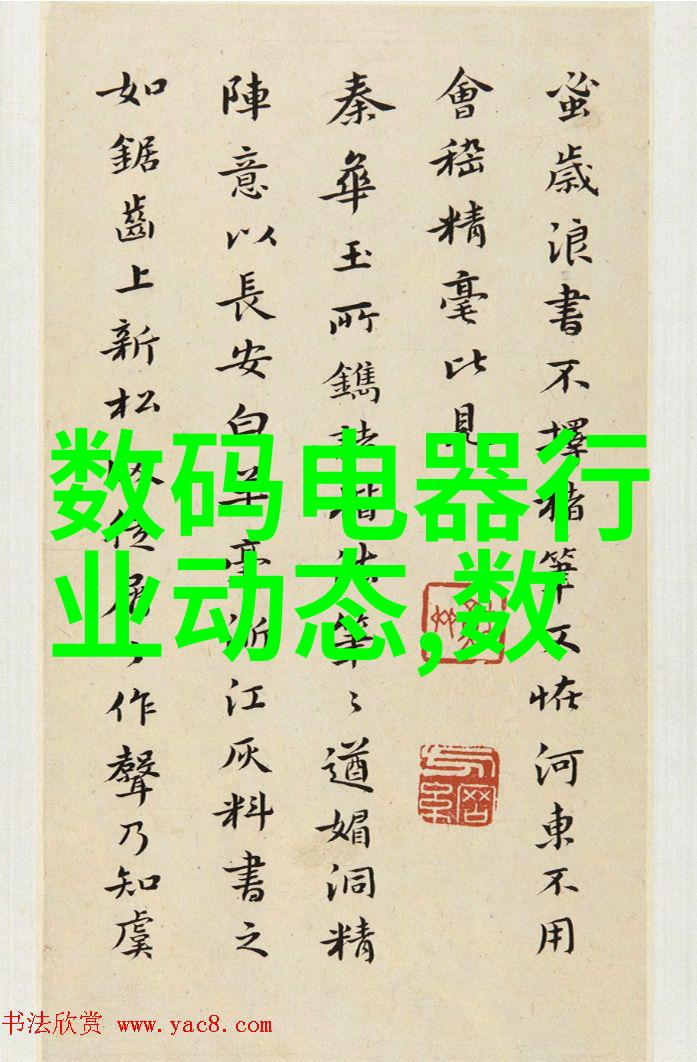 数码电器行
业动态,数
蚤歲浪書不擇楮筆又恠河東不用
會稽精毫比見
秦華玉所鐫諸楷法筆々遒媚洞精
陣意以長安白羊毫浙江灰料書之
如鋸齒上新松作聲乃知虞
书法欣赏 www.yac8.com